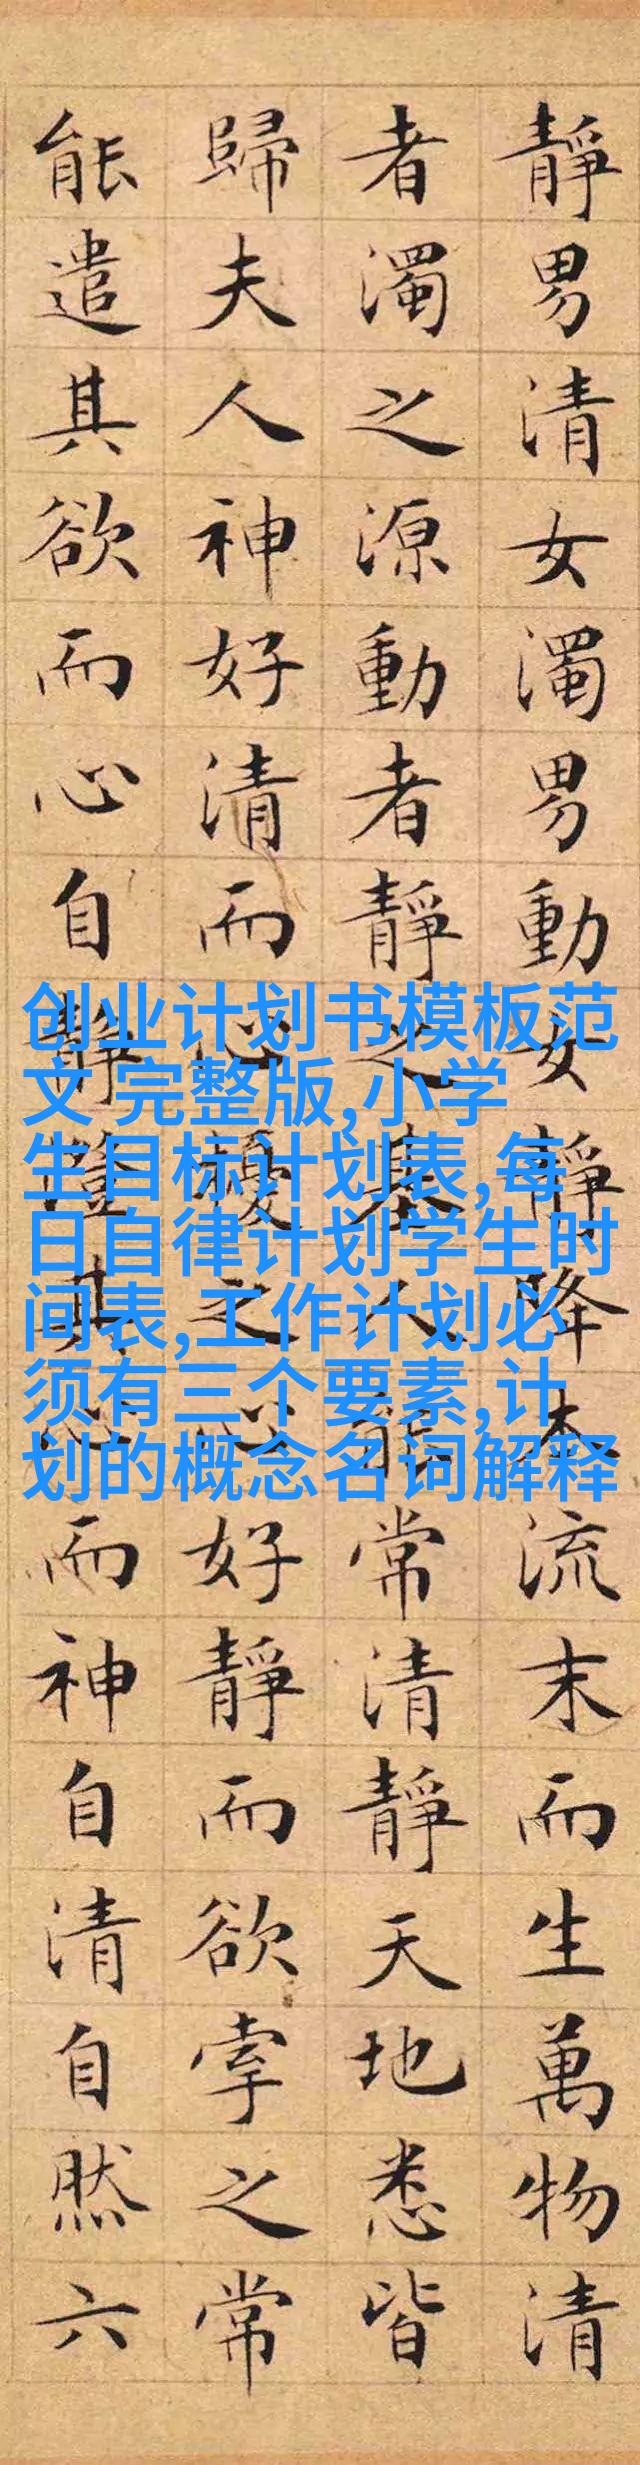 靜男清女濁男動女靜降本流末而生萬物清
者濁之源動者靜之基人能常清靜天地悉皆
歸夫人神好清而心擾之心好靜而欲牽之常
能遣其欲而心自靜澄其心而神自清自然六
创业计划书模板范
文 完整版,小学
生目标计划表,每
日自律计划学生时
间表,工作计划必
须有三个要素,计
划的概念名词解释